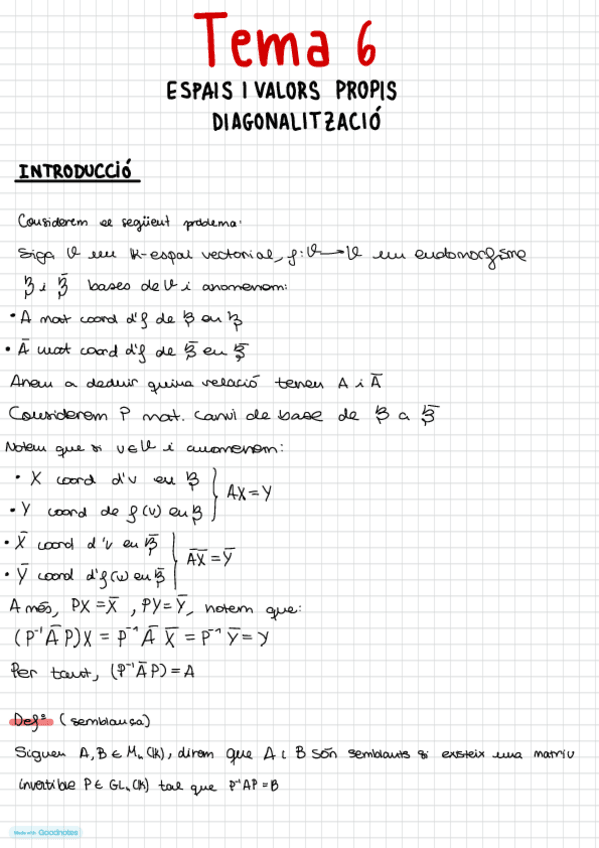 Tema 6
ESPAIS I VALORS PROPIS
DIAGONALITZACIÓ
INTRODUCCIÓ
Considerem el següent problema:
Siga V un K-espai vectorial, f: V → V un endomorfisme
B i B̄ bases de V i anomenem:
• A mat coord d'f de B en B
• Ā mat coord d'f de B̄ en B̄
Anem a deduir quina relació tenen A i Ā
Considerem P mat. canvi de base de B a B̄
Notem que si v ∈ V i anomenem:
• X coord d'v en B
• Y coord de f(v) en B } AX = Y
• X̄ coord d'v en B̄
• Ȳ coord d'f(v) en B̄ } ĀX̄ = Ȳ
A més, PX = X̄, PY = Ȳ, notem que:
(P⁻¹ĀP)X = P⁻¹ĀX̄ = P⁻¹Ȳ = Y
Per tant, (P⁻¹ĀP) = A
Defº (semblança)
Siguen A, B ∈ Mₙ(K), direm que A i B són semblants si existeix una matriu
invertible P ∈ GLₙ(K) tal que P⁻¹AP = B
Made with Goodnotes